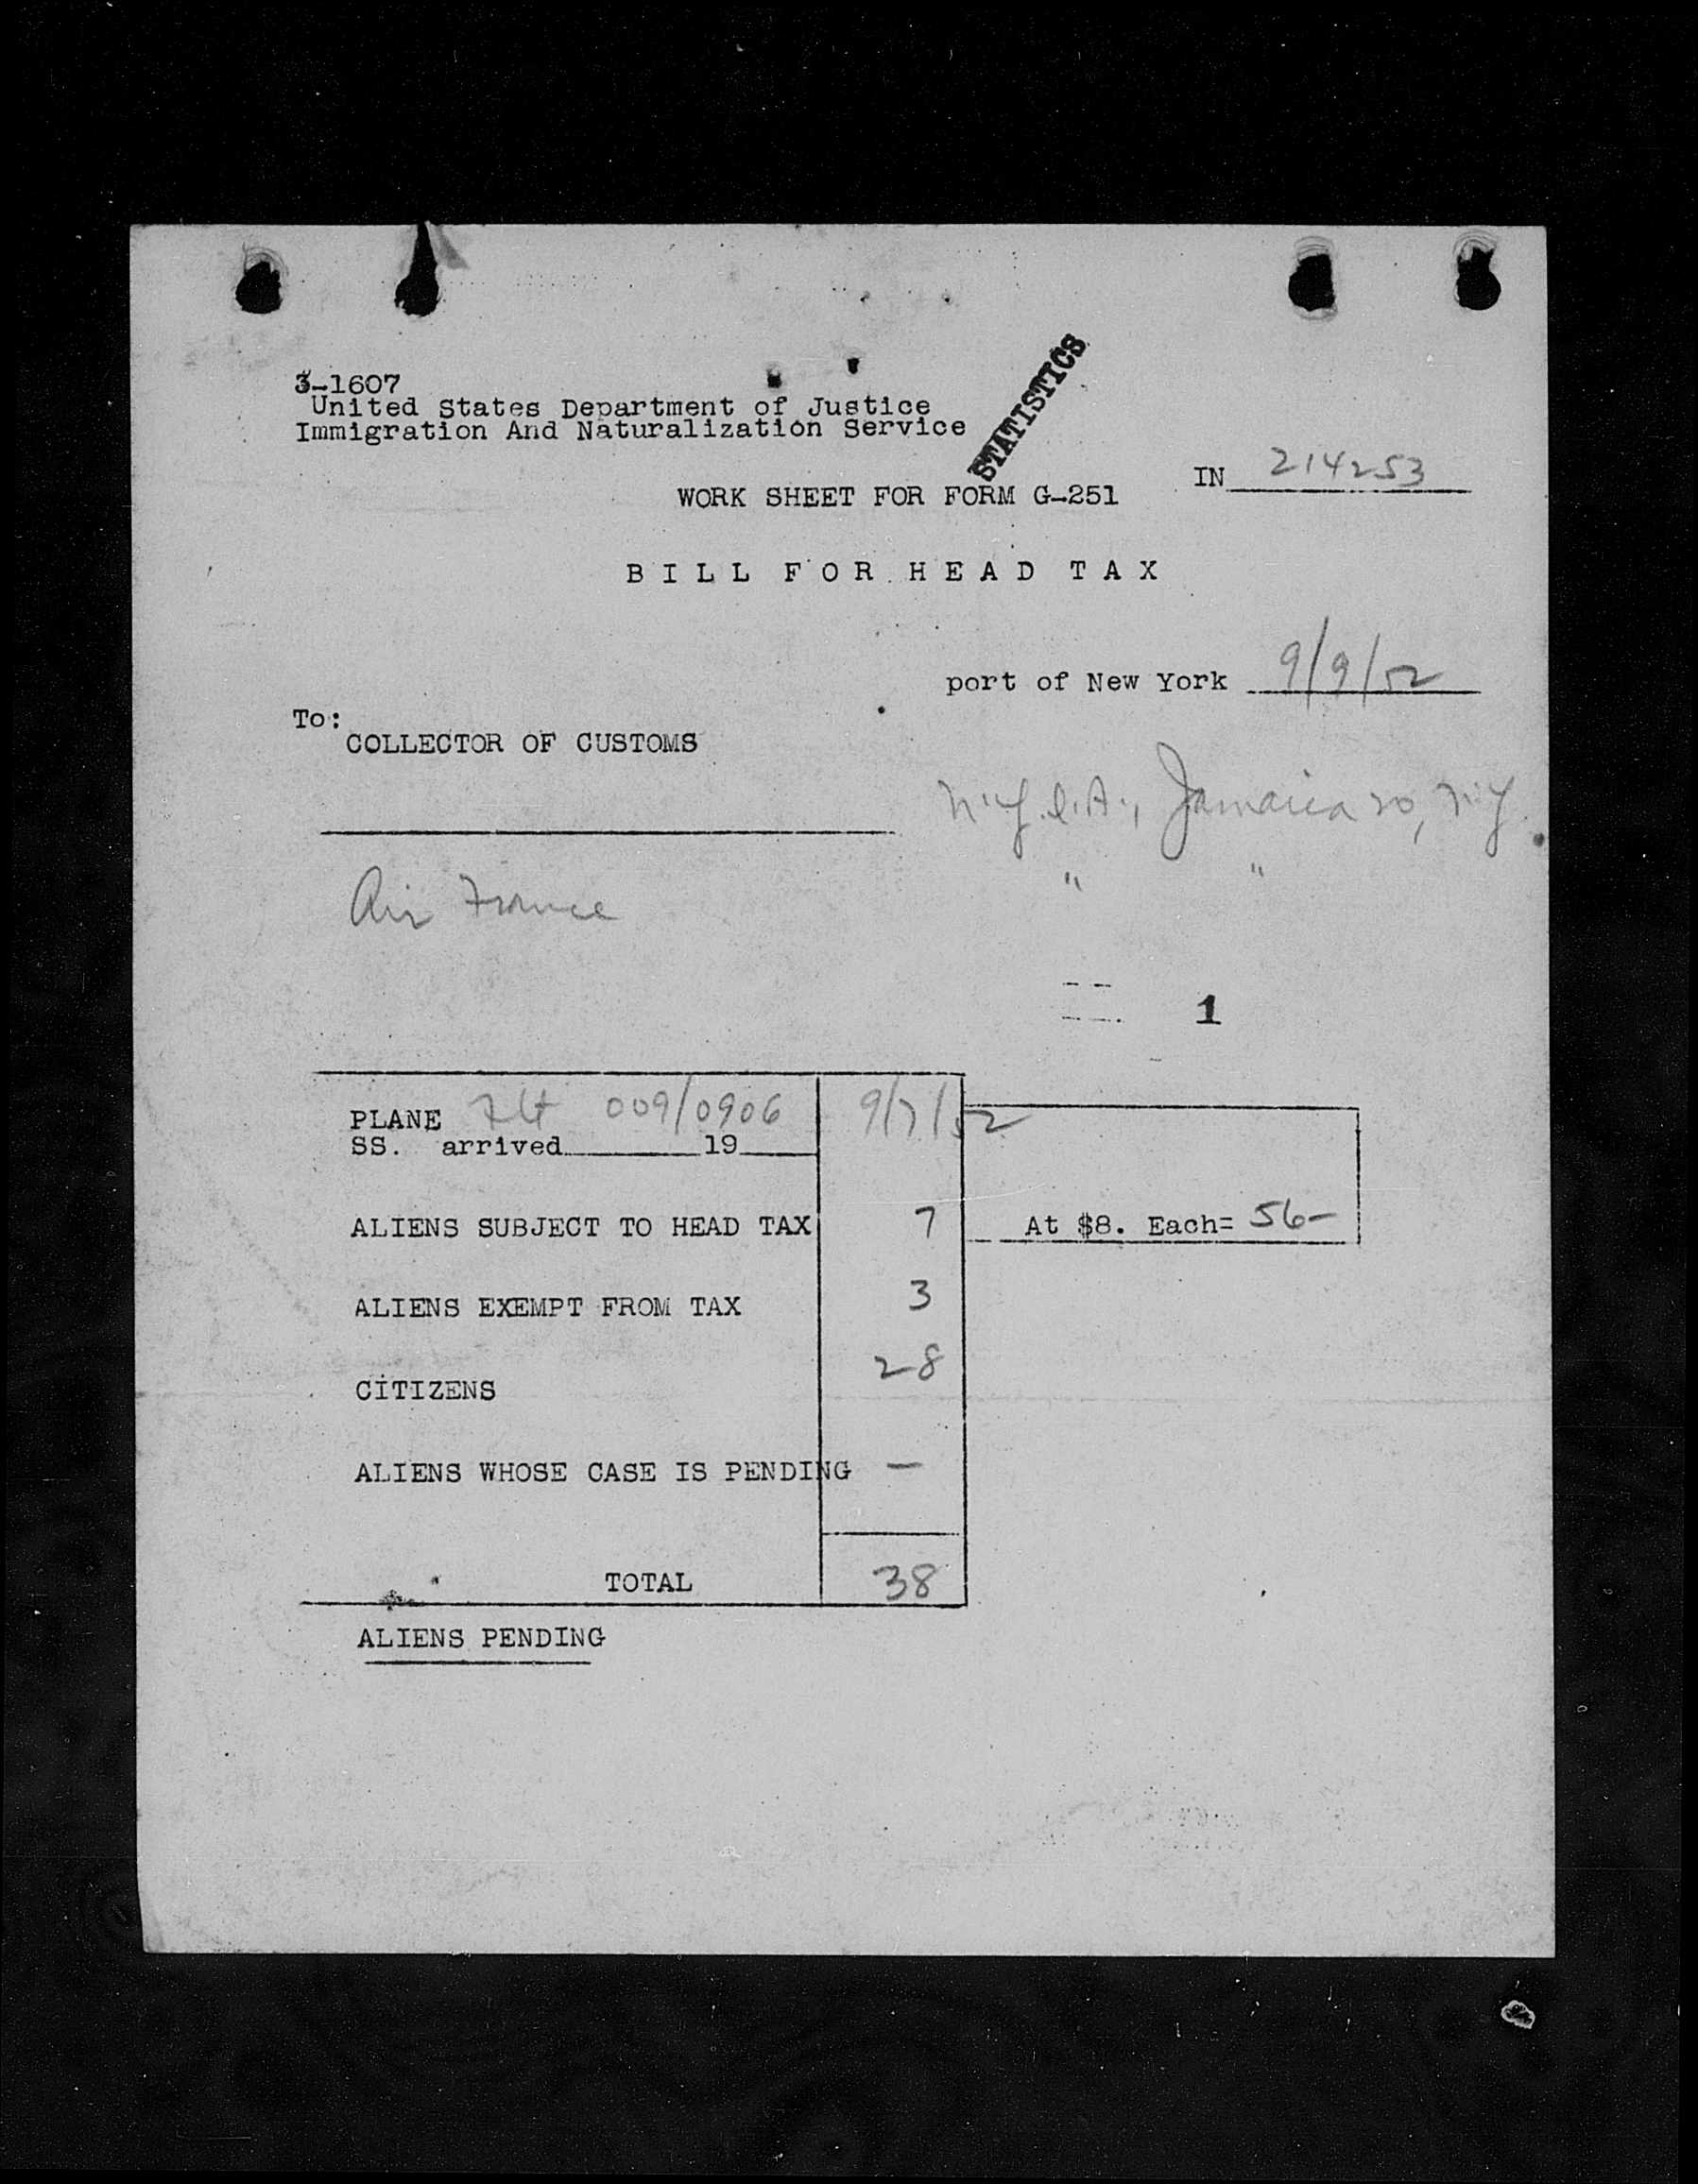 3-1607
United States Department of Justice
Immigration And Naturalization Service
STATISTICS
IN 214253
WORK SHEET FOR FORM G-251
BILL FOR HEAD TAX
port of New York 9/9/52
To:
COLLECTOR OF CUSTOMS
N.Y.I.A., Jamaica 20, N.Y.
" "
Air France
1
PLANE Flt 009/0906 9/7/52
SS. arrived 19
ALIENS SUBJECT TO HEAD TAX 7 At $8. Each= 56-
ALIENS EXEMPT FROM TAX 3
CITIZENS 28
ALIENS WHOSE CASE IS PENDING —
TOTAL 38
ALIENS PENDING